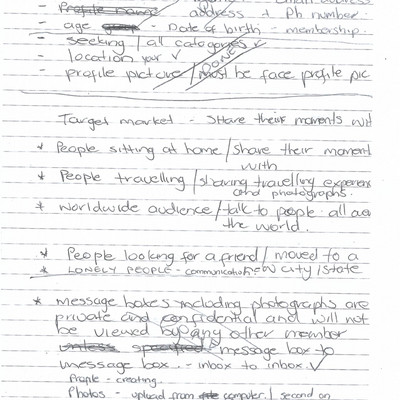 - Profile name address + Ph number.
- age - Date of birth - membership.
- seeking / all catagories ✓
- location your ✓
- profile picture / must be face profile pic
DONE
Target market - Share their moments wit
* People sitting at home / share their moment
with
* People travelling / sharing travelling experien
and photographs.
* Worldwide audience / talk to people all over
the world.
* People looking for a friend / moved to a
* LONELY PEOPLE - communication. new city / state
* message boxes including photographs are
private and confidential and will not
be viewed by any other member
unless specified message box to
message box. - inbox to inbox. ✓
Profile - creating.
Photos - upload from computer / second on